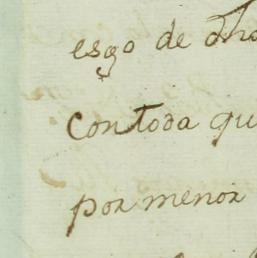 esgo de dho
con toda qu
por menor